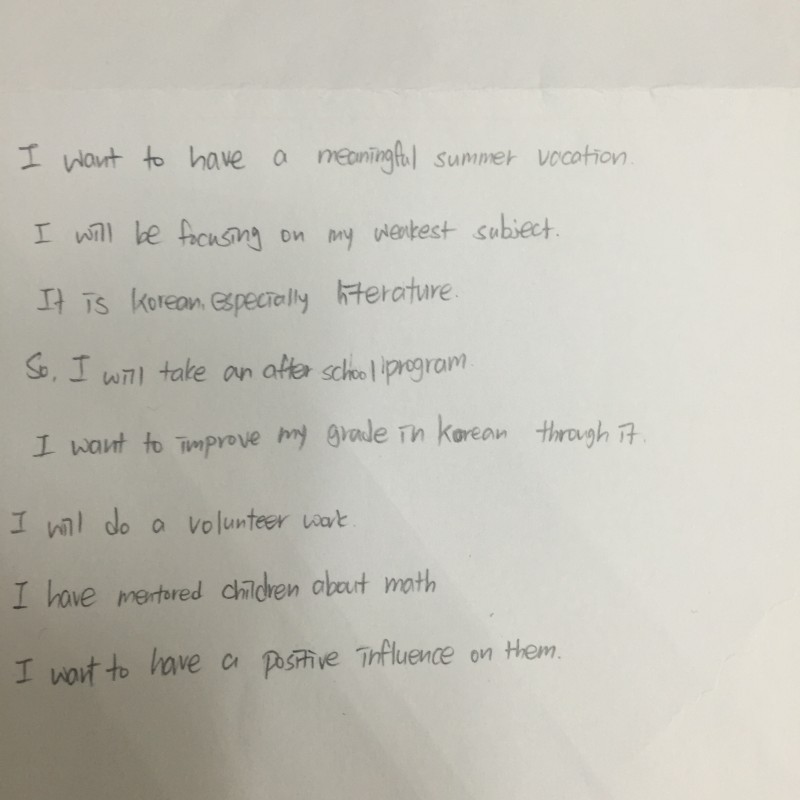 I want to have a meaningful summer vocation.
I will be focusing on my weakest subject.
It is Korean, especially literature.
So, I will take an after school program
I want to improve my grade in Korean through it.
I will do a volunteer work.
I have mentored children about math
I want to have a positive influence on them.